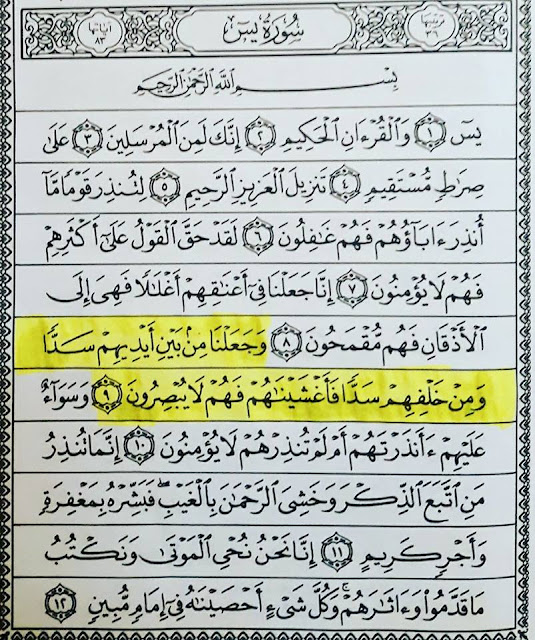 ترتيبها ٣٦
سُورَةُ يسٓ
آياتها ٨٣
بِسْمِ ٱللَّهِ ٱلرَّحْمَٰنِ ٱلرَّحِيمِ
يسٓ ١ وَٱلْقُرْءَانِ ٱلْحَكِيمِ ٢ إِنَّكَ لَمِنَ ٱلْمُرْسَلِينَ ٣ عَلَىٰ
صِرَٰطٍ مُّسْتَقِيمٍ ٤ تَنزِيلَ ٱلْعَزِيزِ ٱلرَّحِيمِ ٥ لِتُنذِرَ قَوْمًا مَّآ
أُنذِرَ ءَابَآؤُهُمْ فَهُمْ غَٰفِلُونَ ٦ لَقَدْ حَقَّ ٱلْقَوْلُ عَلَىٰٓ أَكْثَرِهِمْ
فَهُمْ لَا يُؤْمِنُونَ ٧ إِنَّا جَعَلْنَا فِىٓ أَعْنَٰقِهِمْ أَغْلَٰلًا فَهِىَ إِلَى
ٱلْأَذْقَانِ فَهُم مُّقْمَحُونَ ٨ وَجَعَلْنَا مِنۢ بَيْنِ أَيْدِيهِمْ سَدًّا
وَمِنْ خَلْفِهِمْ سَدًّا فَأَغْشَيْنَٰهُمْ فَهُمْ لَا يُبْصِرُونَ ٩ وَسَوَآءٌ
عَلَيْهِمْ ءَأَنذَرْتَهُمْ أَمْ لَمْ تُنذِرْهُمْ لَا يُؤْمِنُونَ ١٠ إِنَّمَا تُنذِرُ
مَنِ ٱتَّبَعَ ٱلذِّكْرَ وَخَشِىَ ٱلرَّحْمَٰنَ بِٱلْغَيْبِ ۖ فَبَشِّرْهُ بِمَغْفِرَةٍ
وَأَجْرٍ كَرِيمٍ ١١ إِنَّا نَحْنُ نُحْىِ ٱلْمَوْتَىٰ وَنَكْتُبُ
مَا قَدَّمُوا۟ وَءَاثَٰرَهُمْ ۚ وَكُلَّ شَىْءٍ أَحْصَيْنَٰهُ فِىٓ إِمَامٍ مُّبِينٍ ١٢